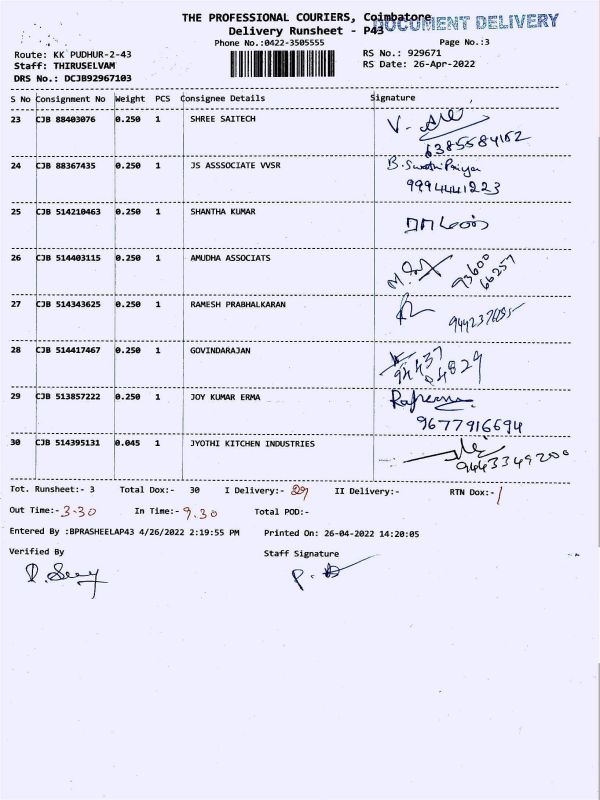 THE PROFESSIONAL COURIERS, Coimbatore
DOCUMENT DELIVERY
Delivery Runsheet - P43
Phone No.:0422-3505555
Page No.:3
Route: KK PUDHUR-2-43
RS No.: 929671
Staff: THIRUSELVAM
RS Date: 26-Apr-2022
DRS No.: DCJB92967103
S No Consignment No Weight PCS Consignee Details Signature
23 CJB 88403076 0.250 1 SHREE SAITECH
6385584162
24 CJB 88367435 0.250 1 JS ASSSOCIATE VVSR B. Swathi Priya
9994441223
25 CJB 514210463 0.250 1 SHANTHA KUMAR
26 CJB 514403115 0.250 1 AMUDHA ASSOCIATS
93600
66257
27 CJB 514343625 0.250 1 RAMESH PRABHALKARAN
28 CJB 514417467 0.250 1 GOVINDARAJAN
94437
04829
29 CJB 513857222 0.250 1 JOY KUMAR ERMA
9677916694
30 CJB 514395131 0.045 1 JYOTHI KITCHEN INDUSTRIES
9443349200
Tot. Runsheet:- 3 Total Dox:- 30 I Delivery:- 29 II Delivery:- RTN Dox:- 1
Out Time:- 3.30 In Time:- 9.30 Total POD:-
Entered By :BPRASHEELAP43 4/26/2022 2:19:55 PM Printed On: 26-04-2022 14:20:05
Verified By Staff Signature